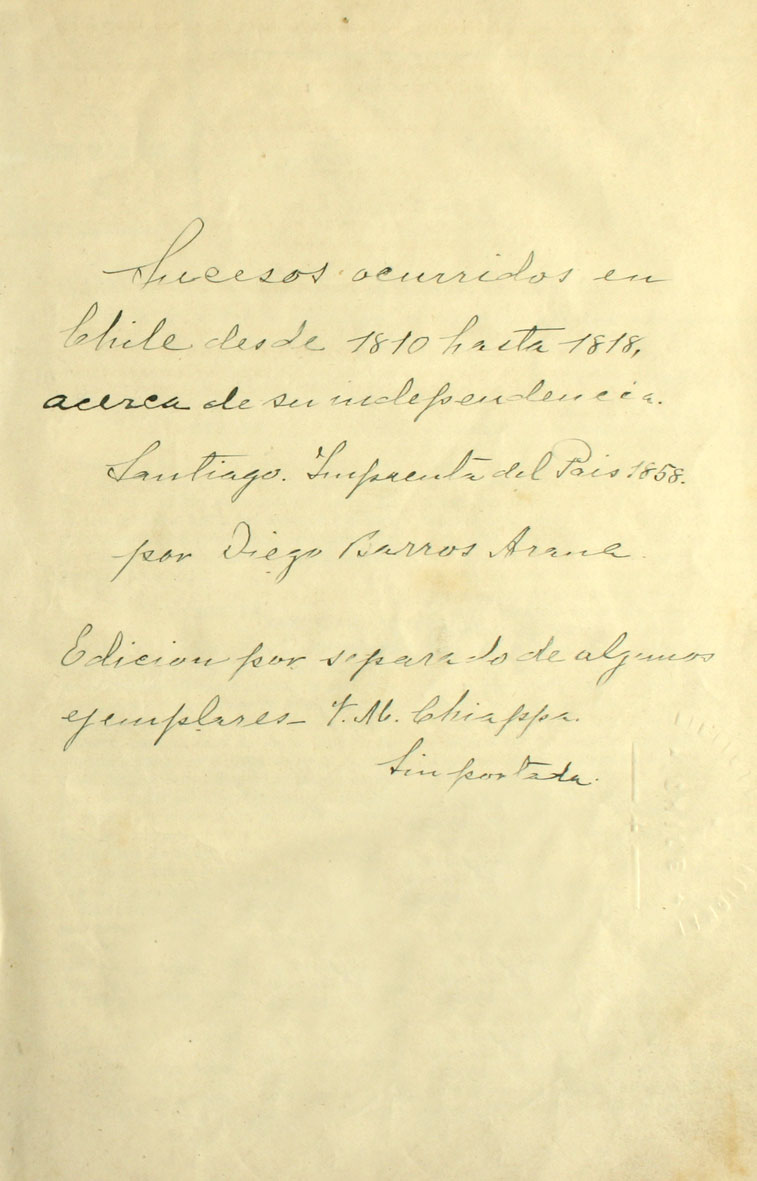 Sucesos ocurridos en
Chile desde 1810 hasta 1818,
acerca de su independencia.
Santiago. Imprenta del Pais 1858.
por Diego Barros Arana.
Edicion por separado de algunos
ejemplares - V. M. Chiappa.
Sin portada.